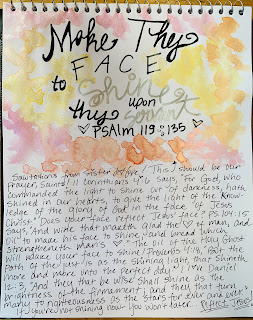 Make Thy
FACE
to Shine
upon
thy servant
♡ PSAlm 119:135 ♡
Salutations from Sister of Love! This should be our
Prayer, Saints! II Corinthians 4:6 says, "For God, who
commanded the light to shine out of darkness, hath
shined in our hearts, to give the light of the know-
ledge of the glory of God in the face of Jesus
Christ." Does our face reflect Jesus' face? Ps. 104:15
says, "And wine that maketh glad the ♡ of man, and
oil to make his face to shine, and bread which
strengtheneth man's ♡." The oil of the Holy Ghost
will make your face to shine! Proverbs 4:18, "But the
path of the just is as the shining light, that shineth
more and more unto the perfect day." In Daniel
12:3, "And they that be wise shall shine as the
brightness of the firmament; and they that turn
many to righteousness as the stars for ever and ever."
If you're not shining now you won't later.